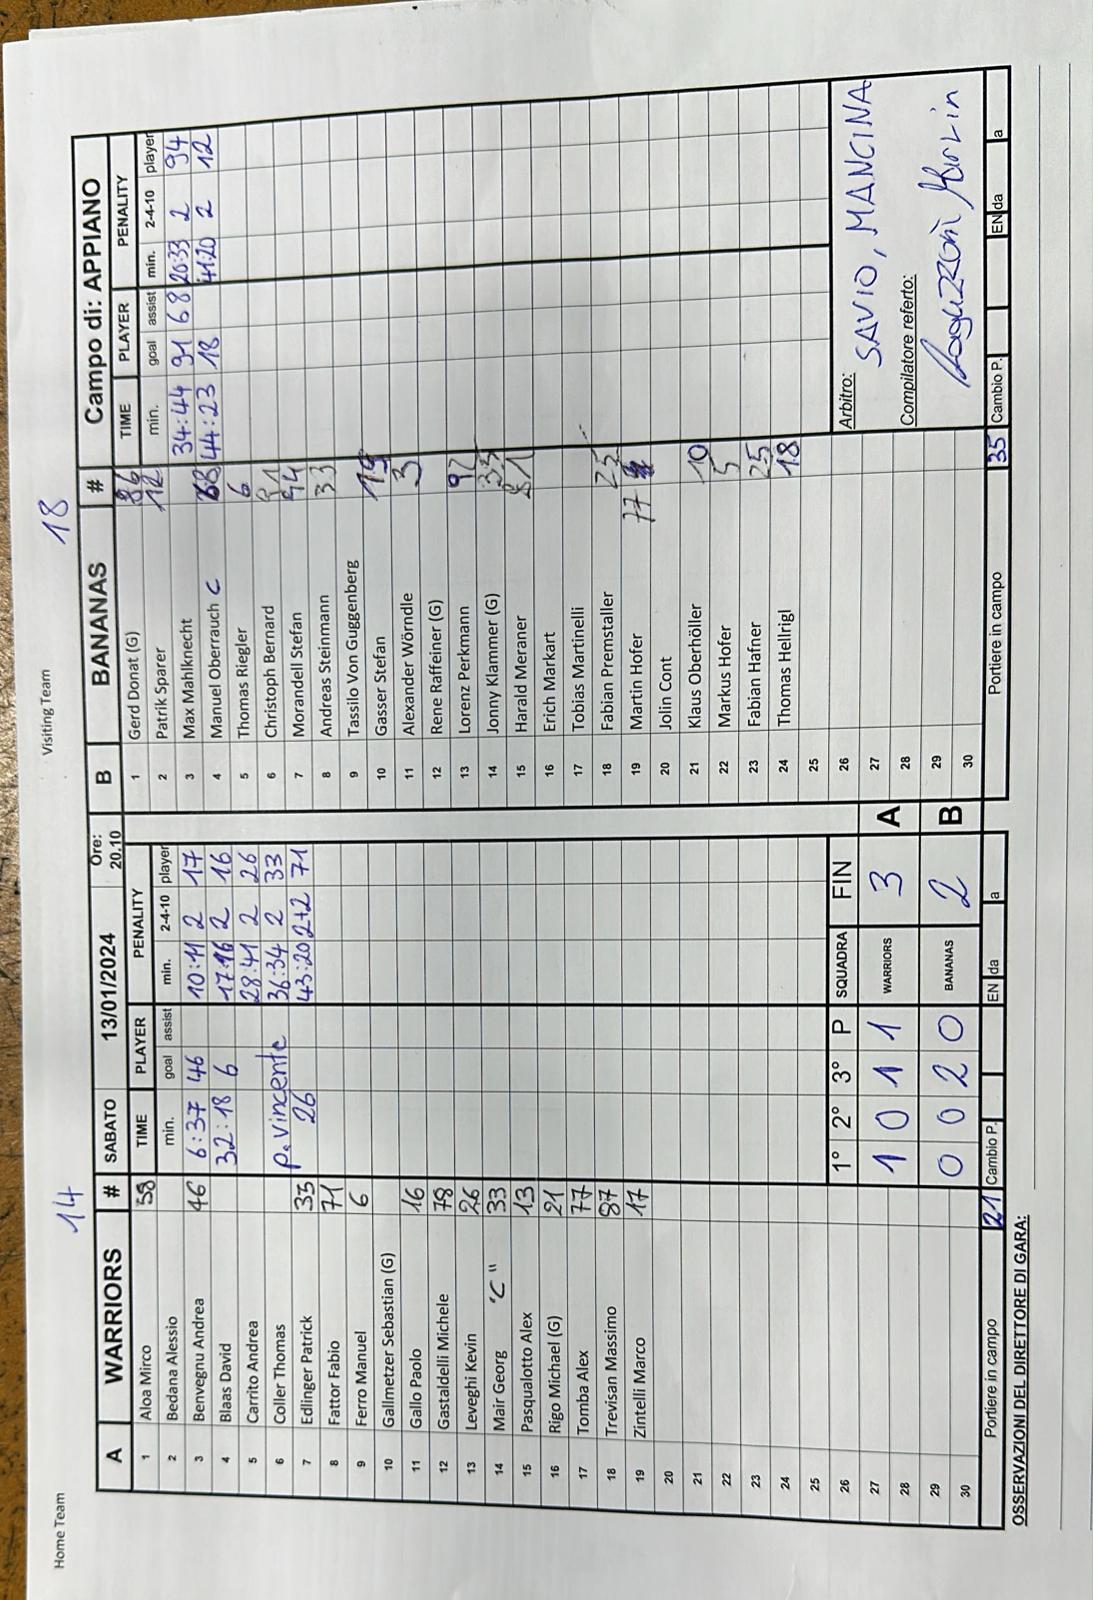 Home Team 14 Visiting Team 18
A WARRIORS # SABATO 13/01/2024 Ore: 20.10 B BANANAS # Campo di: APPIANO
TIME PLAYER PENALITY TIME PLAYER PENALITY
min. goal assist min. 2-4-10 player min. goal assist min. 2-4-10 player
1 Aloa Mirco 1 Gerd Donat (G)
2 Bedana Alessio 2 Patrik Sparer 12 34:44 91 68 20:33 2 94
3 Benvegnu Andrea 46 6:37 46 10:11 2 17 3 Max Mahlknecht 44:23 18 41:20 2 12
4 Blaas David 32:18 6 17:16 2 16 4 Manuel Oberrauch C 68
5 Carrito Andrea 28:41 2 26 5 Thomas Riegler 6
6 Coller Thomas P. Vincente 36:34 2 33 6 Christoph Bernard
7 Edlinger Patrick 35 26 43:20 2+2 71 7 Morandell Stefan 94
8 Fattor Fabio 71 8 Andreas Steinmann 33
9 Ferro Manuel 6 9 Tassilo Von Guggenberg
10 Gallmetzer Sebastian (G) 10 Gasser Stefan 19
11 Gallo Paolo 16 11 Alexander Wörndle 3
12 Gastaldelli Michele 78 12 Rene Raffeiner (G)
13 Leveghi Kevin 26 13 Lorenz Perkmann 97
14 Mair Georg "C" 33 14 Jonny Klammer (G) 35
15 Pasqualotto Alex 13 15 Harald Meraner 81
16 Rigo Michael (G) 21 16 Erich Markart
17 Tomba Alex 77 17 Tobias Martinelli
18 Trevisan Massimo 87 18 Fabian Premstaller
19 Zintelli Marco 17 19 Martin Hofer 77
20 20 Jolin Cont
21 21 Klaus Oberhöller 10
22 22 Markus Hofer 5
23 23 Fabian Hafner 25
24 24 Thomas Hellrigl 18
25 25
26 1° 2° 3° P SQUADRA FIN 26 Arbitro: SAVIO, MANCINA
27 1 0 1 1 WARRIORS 3 A 27
28 28 Compilatore referto:
29 0 0 2 0 BANANAS 2 B 29
30 30
Portiere in campo 21 Cambio P. EN da a Portiere in campo 35 Cambio P. EN da a
OSSERVAZIONI DEL DIRETTORE DI GARA: